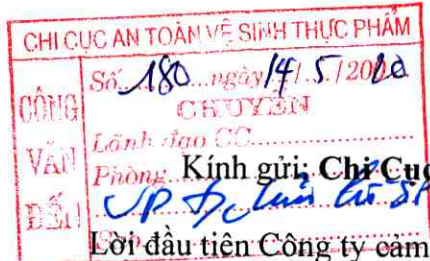 CHI CỤC AN TOÀN VỆ SINH THỰC PHẨM
CÔNG VĂN ĐẾN
Số 180 ngày 14/ 5 /2020
CHUYỂN
Lãnh đạo CC
Phòng
Kính gửi: Chi Cục
Lời đầu tiên Công ty cảm